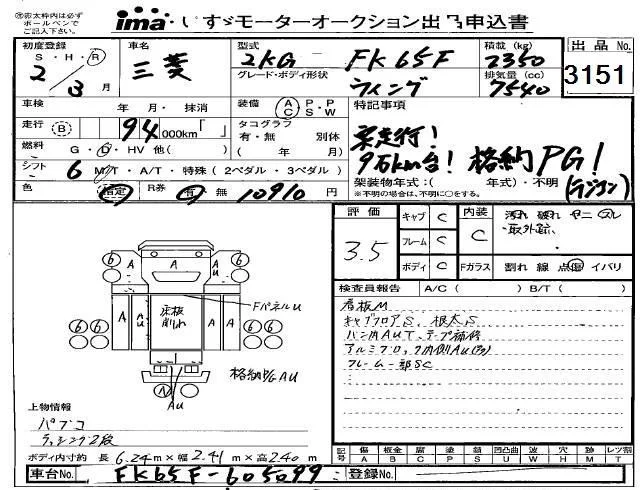 ima・いすゞモーターオークション出品申込書
出品No.
3151
初度登録
S・H・R
2 3月
車名
三菱
型式
2KG－FK65F
グレード・ボディ形状
ウィング
積載(kg)
2350
排気量(cc)
7540
車検 年 月・抹消
走行 B 94,000km「 」
燃料 G・D・HV 他( )
シフト 6 M/T・A/T・特殊(2ペダル・3ペダル)
色 指定 R券 有・無 10910円
装備 A/C P/S P/W
タコグラフ
有・無 別体
( 年 月)
特記事項
実走行!
9万km台! 格納PG!
架装物年式:( 年式)・不明
※不明の場合は、不明に○をする。
評価
3.5
キャブ C
フレーム C
ボディ C
内装
C
Fガラス
汚れ 破れ ヤニ スレ
・取外跡
割れ 線 点傷 イバリ
検査員報告 A/C( ) B/T( )
看板M
キャブフロアS、根太S
バン内AUT、テープ補修
フレーム一部SC
A A A U
6 6
A A A U
床板
削れ
FパネルU
6 6 6 6
格納PG AU
AU
上物情報
パブコ
ラッシング2段
ボディ内寸約 長 6.24m×幅 2.41m×高 2.40m
記号 傷A 板金B 腐C 塗P 錆S 凹凸曲U 波W 穴H 跡M レツ割T
車台No. FK65F-605099
登録No.